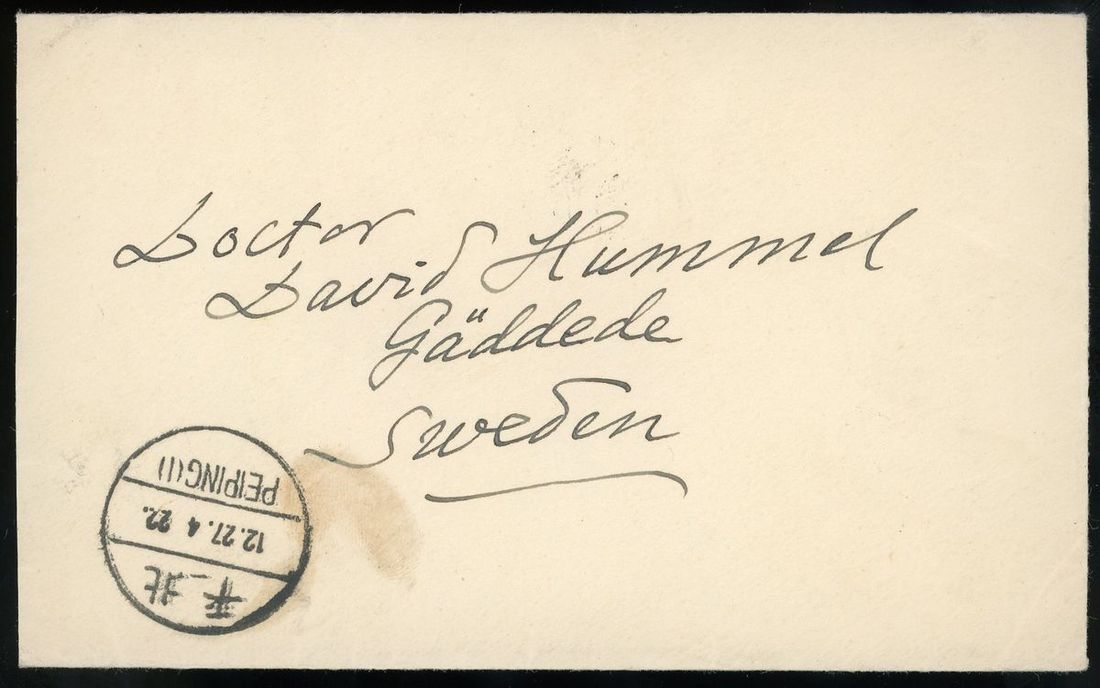 Doctor
David Hummel
Gäddede
Sweden
北平
12.27.4 22.
PEIPING (1)